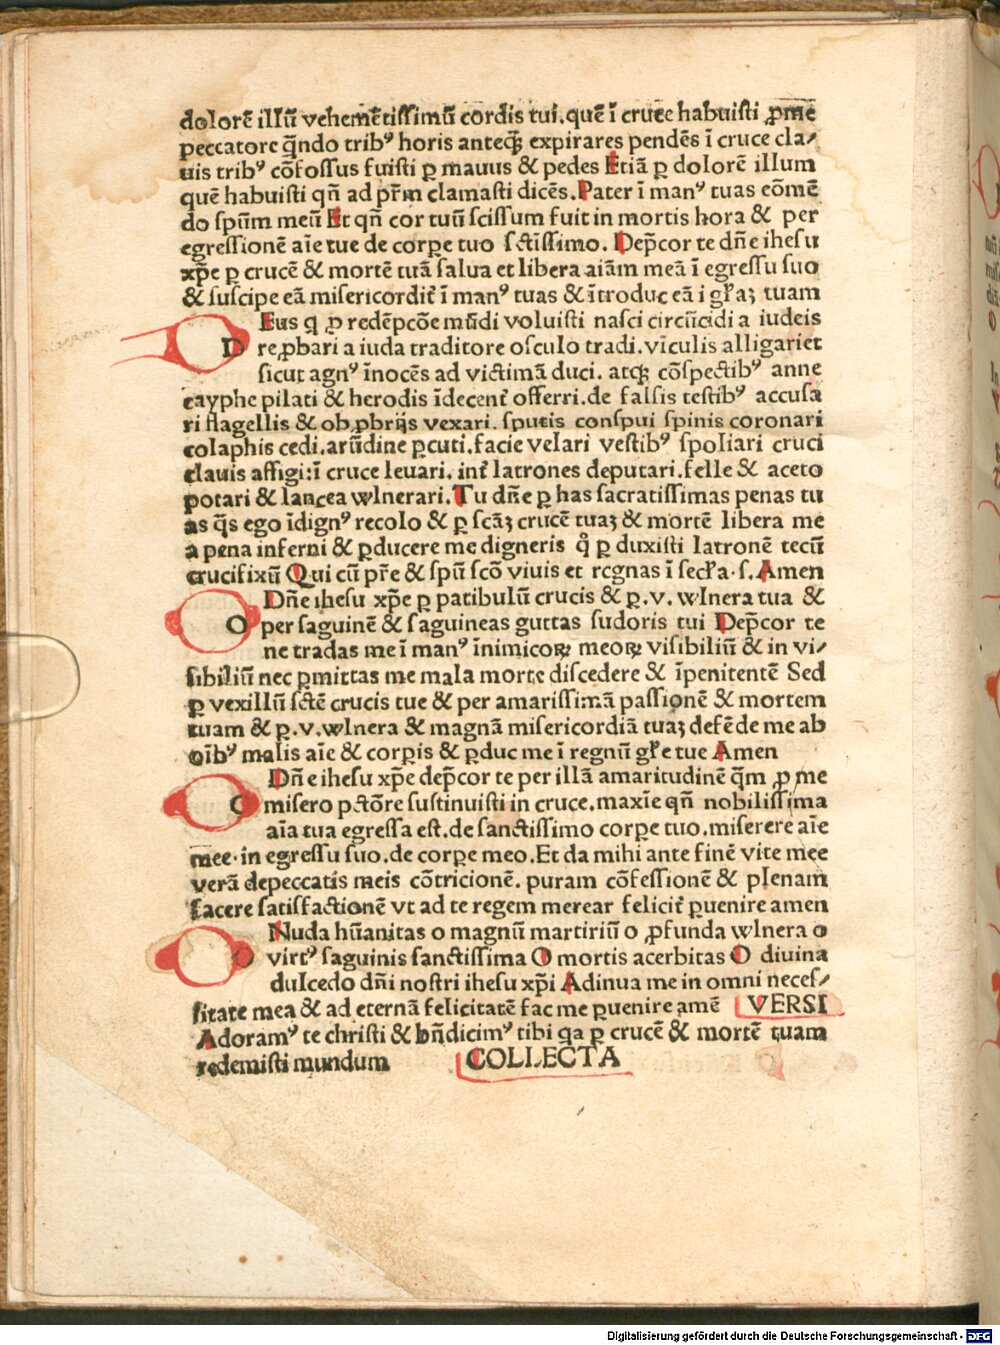 dolorē illū vehemētissimū cordis tui.quē ī cruce habuisti ꝓme
peccatore q̄ndo tribꝰ horis anteqꝫ expirares pendēs ī cruce cla/
uis tribꝰ cōfossus fuisti ꝑ mauus & pedes Etiā ꝑ dolorē illum
quē habuisti qn̄ ad pr̄m clamasti dicēs.Pater ī manꝰ tuas cōmē
do spūm meū Et qn̄ cor tuū scissum fuit in mortis hora & per
egressionē aīe tue de corꝑe tuo sctīssimo. Dep̄cor te dn̄e ihesu
xp̄e ꝑ crucē & mortē tuā salua et libera aīām meā ī egressu suo
& suscipe eā misericordit̄ ī manꝰ tuas & ītroduc eā i gl̄aꝫ tuam
Deus q ꝓ redēpcōe mūdi voluisti nasci circūcidi a iudeis
reꝓbari a iuda traditore osculo tradi.vīculis alligari et
sicut agnꝰ īnocēs ad victimā duci. atqꝫ cōspectibꝰ anne
cayphe pilati & herodis īdecent̄ offerri.de falsis testibꝰ accusa
ri flagellis & obꝓbrijs vexari. sputis conspui spinis coronari
colaphis cedi.arūdine ꝑcuti.facie velari vestibꝰ spoliari cruci
clauis affigi:ī cruce leuari. int̄ latrones deputari.felle & aceto
potari & lancea wlnerari.Tu dn̄e ꝑ has sacratissimas penas tu
as q̄s ego īdignꝰ recolo & ꝑ scāꝫ crucē tuaꝫ & mortē libera me
a pena inferni & ꝑducere me digneris qͦ ꝑ duxisti latronē tecū
crucifixū Qui cū pr̄e & spū scō viuis et rcgnas ī secl̄a.s.Amen
O Dn̄e ihesu xp̄e ꝑ patibulū crucis & ꝑ.v. wlnera tua &
per saguinē & saguineas guttas sudoris tui Dep̄cor te
ne tradas me ī manꝰ īnimicoꝝ meoꝝ visibiliū & in vi/
sibiliū nec ꝑmittas me mala morte discedere & īpenitentē Sed
ꝑ vexillū sctē crucis tue & per amarissimā passionē & mortem
tuam & ꝑ.v.wlnera & magnā misericordiā tuaꝫ defēde me ab
oībꝰ malis aīe & corꝑis & ꝑduc me ī regnū gl̄e tue Amen
O Dn̄e ihesu xp̄e dep̄cor te per illā amaritudinē q̄m ꝓ me
misero pctōre sustinuisti in cruce.maxīe qn̄ nobilissima
aīa tua egressa est.de sanctissimo corꝑe tuo.miserere aīe
mee.in egressu suo.de corꝑe meo.Et da mihi ante finē vite mee
verā depeccatis meis cōtricionē. puram cōfessionē & plenam
facere satisfactionē vt ad te regem merear felicit̄ ꝑuenire amen
O Nuda hūanitas o magnū martiriū o ꝓfunda wlnera o
virtꝰ saguinis sanctissima O mortis acerbitas O diuina
dulcedo dn̄i nostri ihesu xp̄i Adinua me in omni neces/
sitate mea & ad eternā felicitatē fac me ꝑuenire amē VERSI
Adoramꝰ te christi & bn̄dicimꝰ tibi qa ꝑ crucē & mortē tuam
redemisti mundum COLLECTA
Digitalisierung gefördert durch die Deutsche Forschungsgemeinschaft - DFG